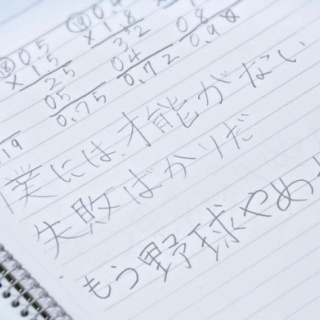 ⑱ 0.5 ⑲ 0.4
× 1.5 × 1.8 0.8
25 32
05 04
0.75 0.72 0.90
19
僕には才能がない
失敗ばかりだ
もう野球やめ